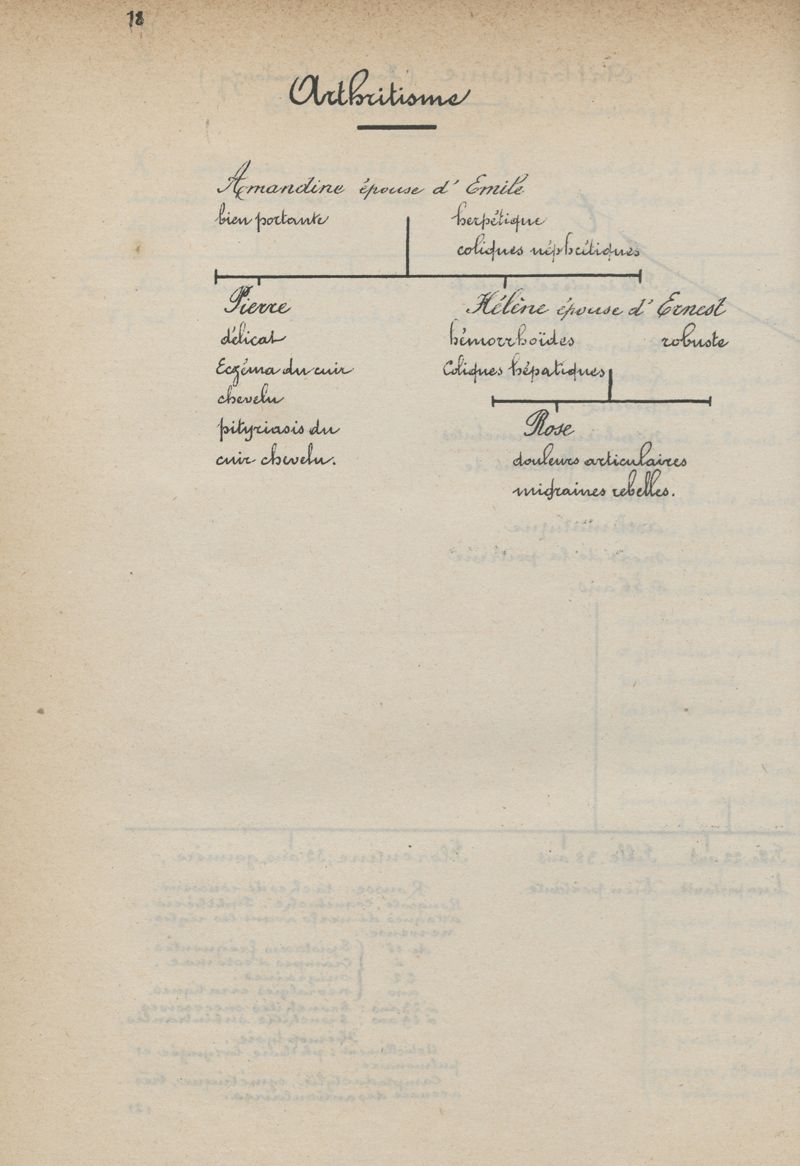 18
Arthritisme
Amandine épouse d' Emile
bien portante herpétique
coliques néphrétiques
Pierre Hélène épouse d' Ernest
délicat hémorrhoïdes robuste
Eczéma du cuir Coliques hépatiques
chevelu
pityriasis du Rose
cuir chevelu. douleurs articulaires
migraines rebelles.